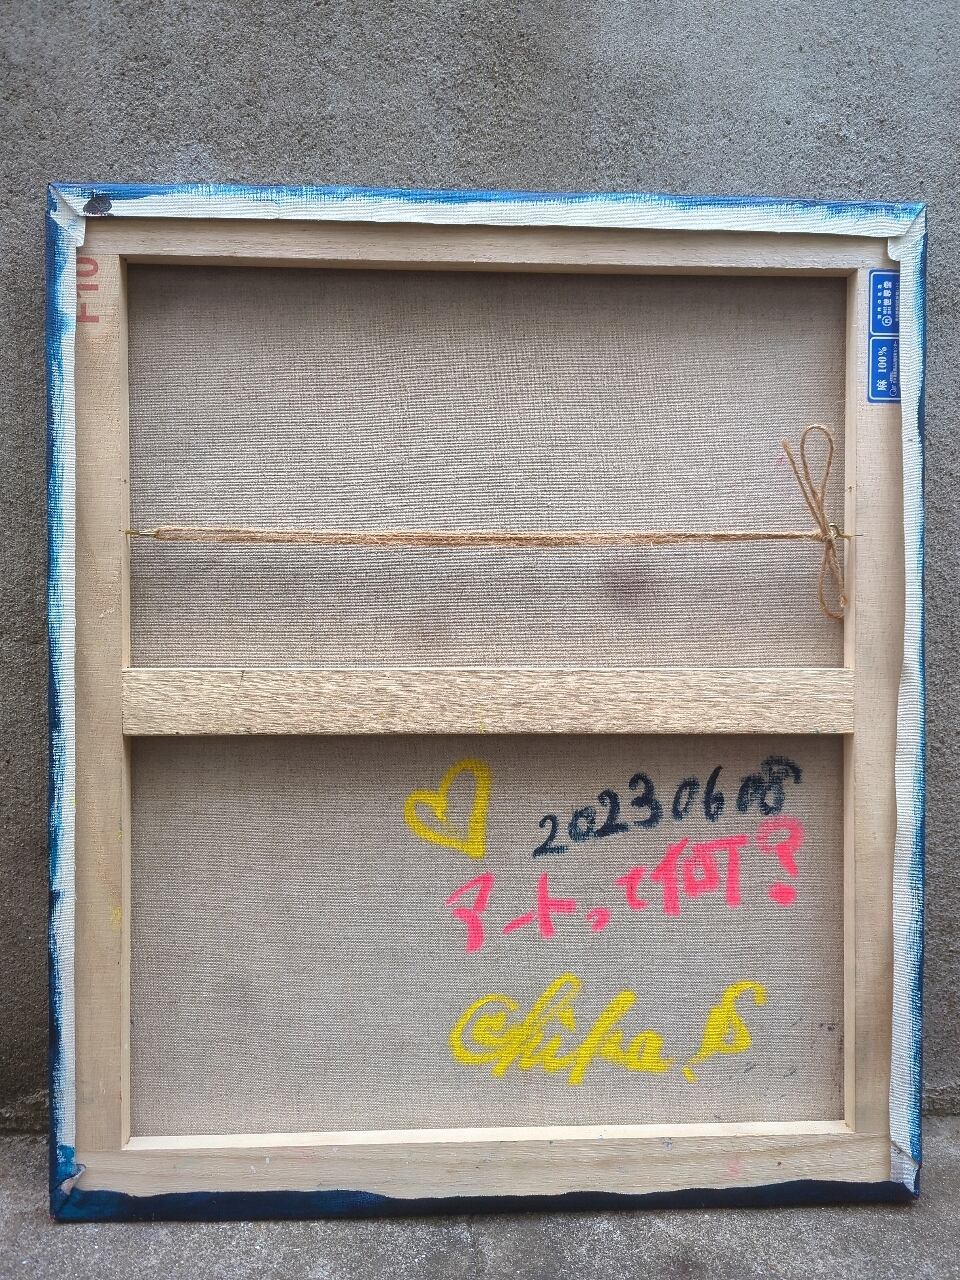 F10
世界堂
麻 100%
20230608
アートって何?
Chika S